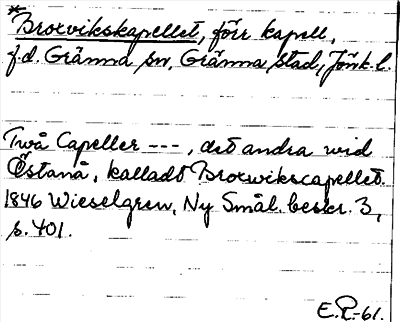 *
Broxvikskapellet, förr kapell,
f.d. Gränna sn, Gränna stad, Jönk. l.
Två Capeller ---, det andra wid
Östanå, kalladt Broxwikscapellet.
1846 Wieselgren, Ny Smål. beskr. 3,
s. 401.
E.R-61.